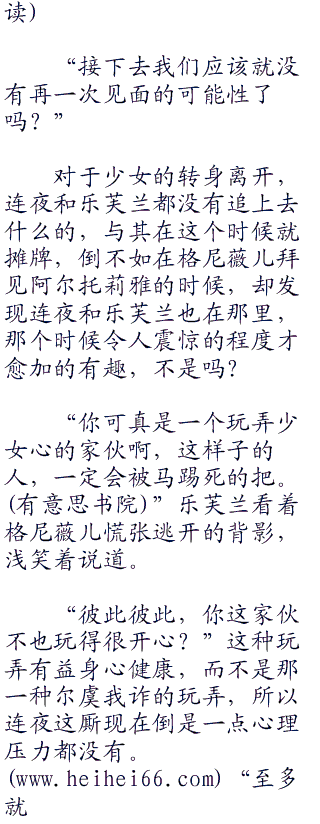 读)
“接下去我们应该就没
有再一次见面的可能性了
吗？”
对于少女的转身离开，
连夜和乐芙兰都没有追上去
什么的，与其在这个时候就
摊牌，倒不如在格尼薇儿拜
见阿尔托莉雅的时候，却发
现连夜和乐芙兰也在那里，
那个时候令人震惊的程度才
愈加的有趣，不是吗？
“你可真是一个玩弄少
女心的家伙啊，这样子的
人，一定会被马踢死的把。
(有意思书院)”乐芙兰看着
格尼薇儿慌张逃开的背影，
浅笑着说道。
“彼此彼此，你这家伙
不也玩得很开心？”这种玩
弄有益身心健康，而不是那
一种尔虞我诈的玩弄，所以
连夜这厮现在倒是一点心理
压力都没有。
(www.heihei66.com)“至多
就